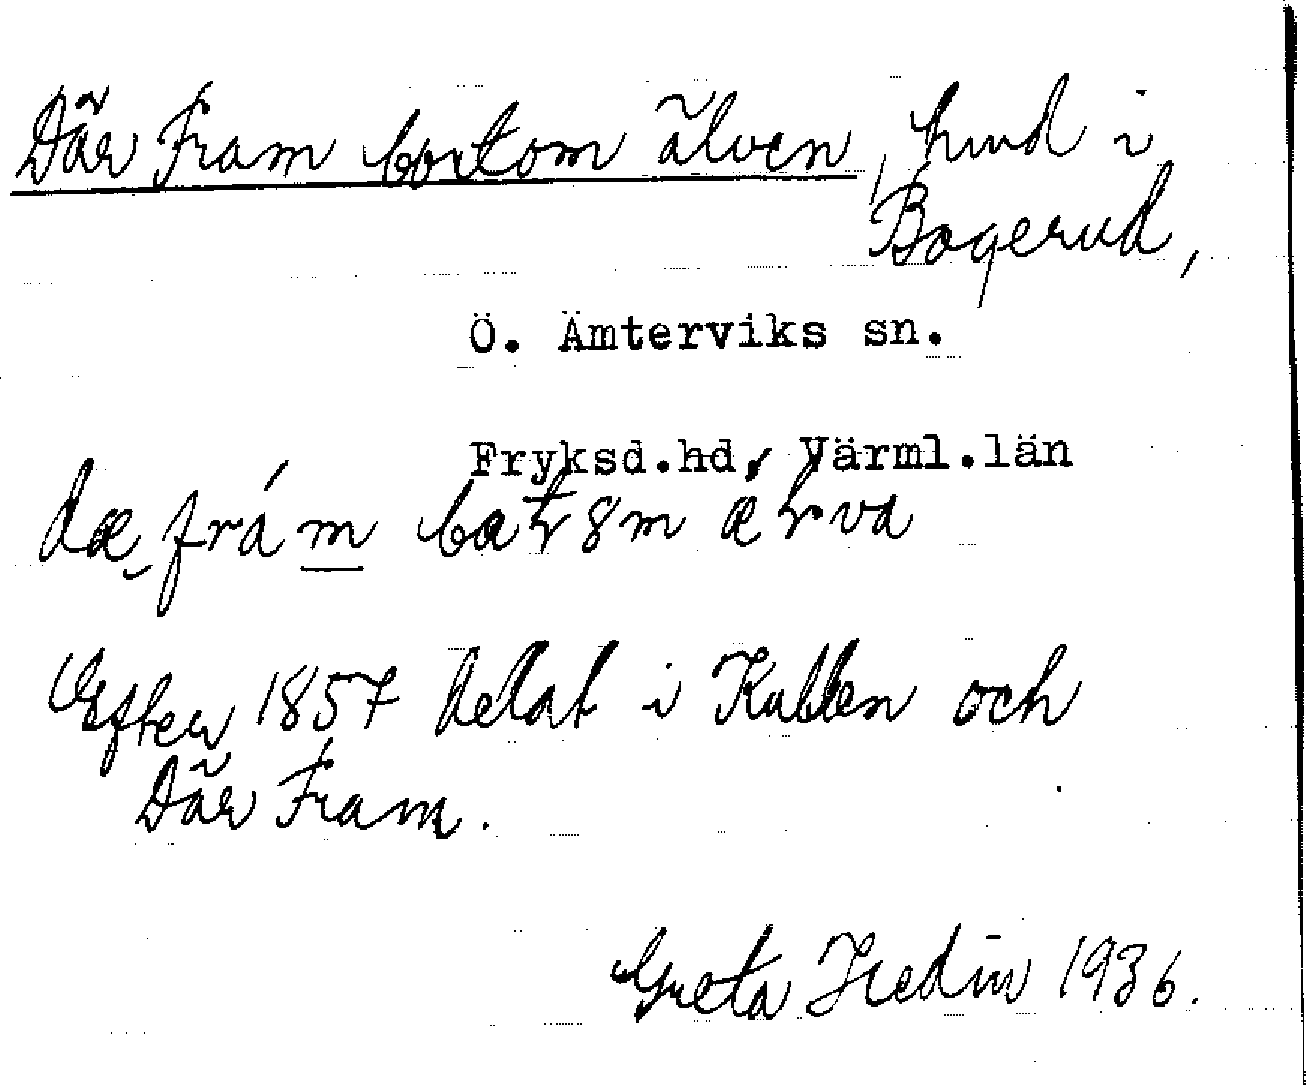 Där Fram bortom älven, hmd i
Bogerud,
Ö. Ämterviks sn.
Fryksd.hd, Värml.län
Efter 1857 delat i Kullen och
Där Fram.
Greta Hedin 1936.